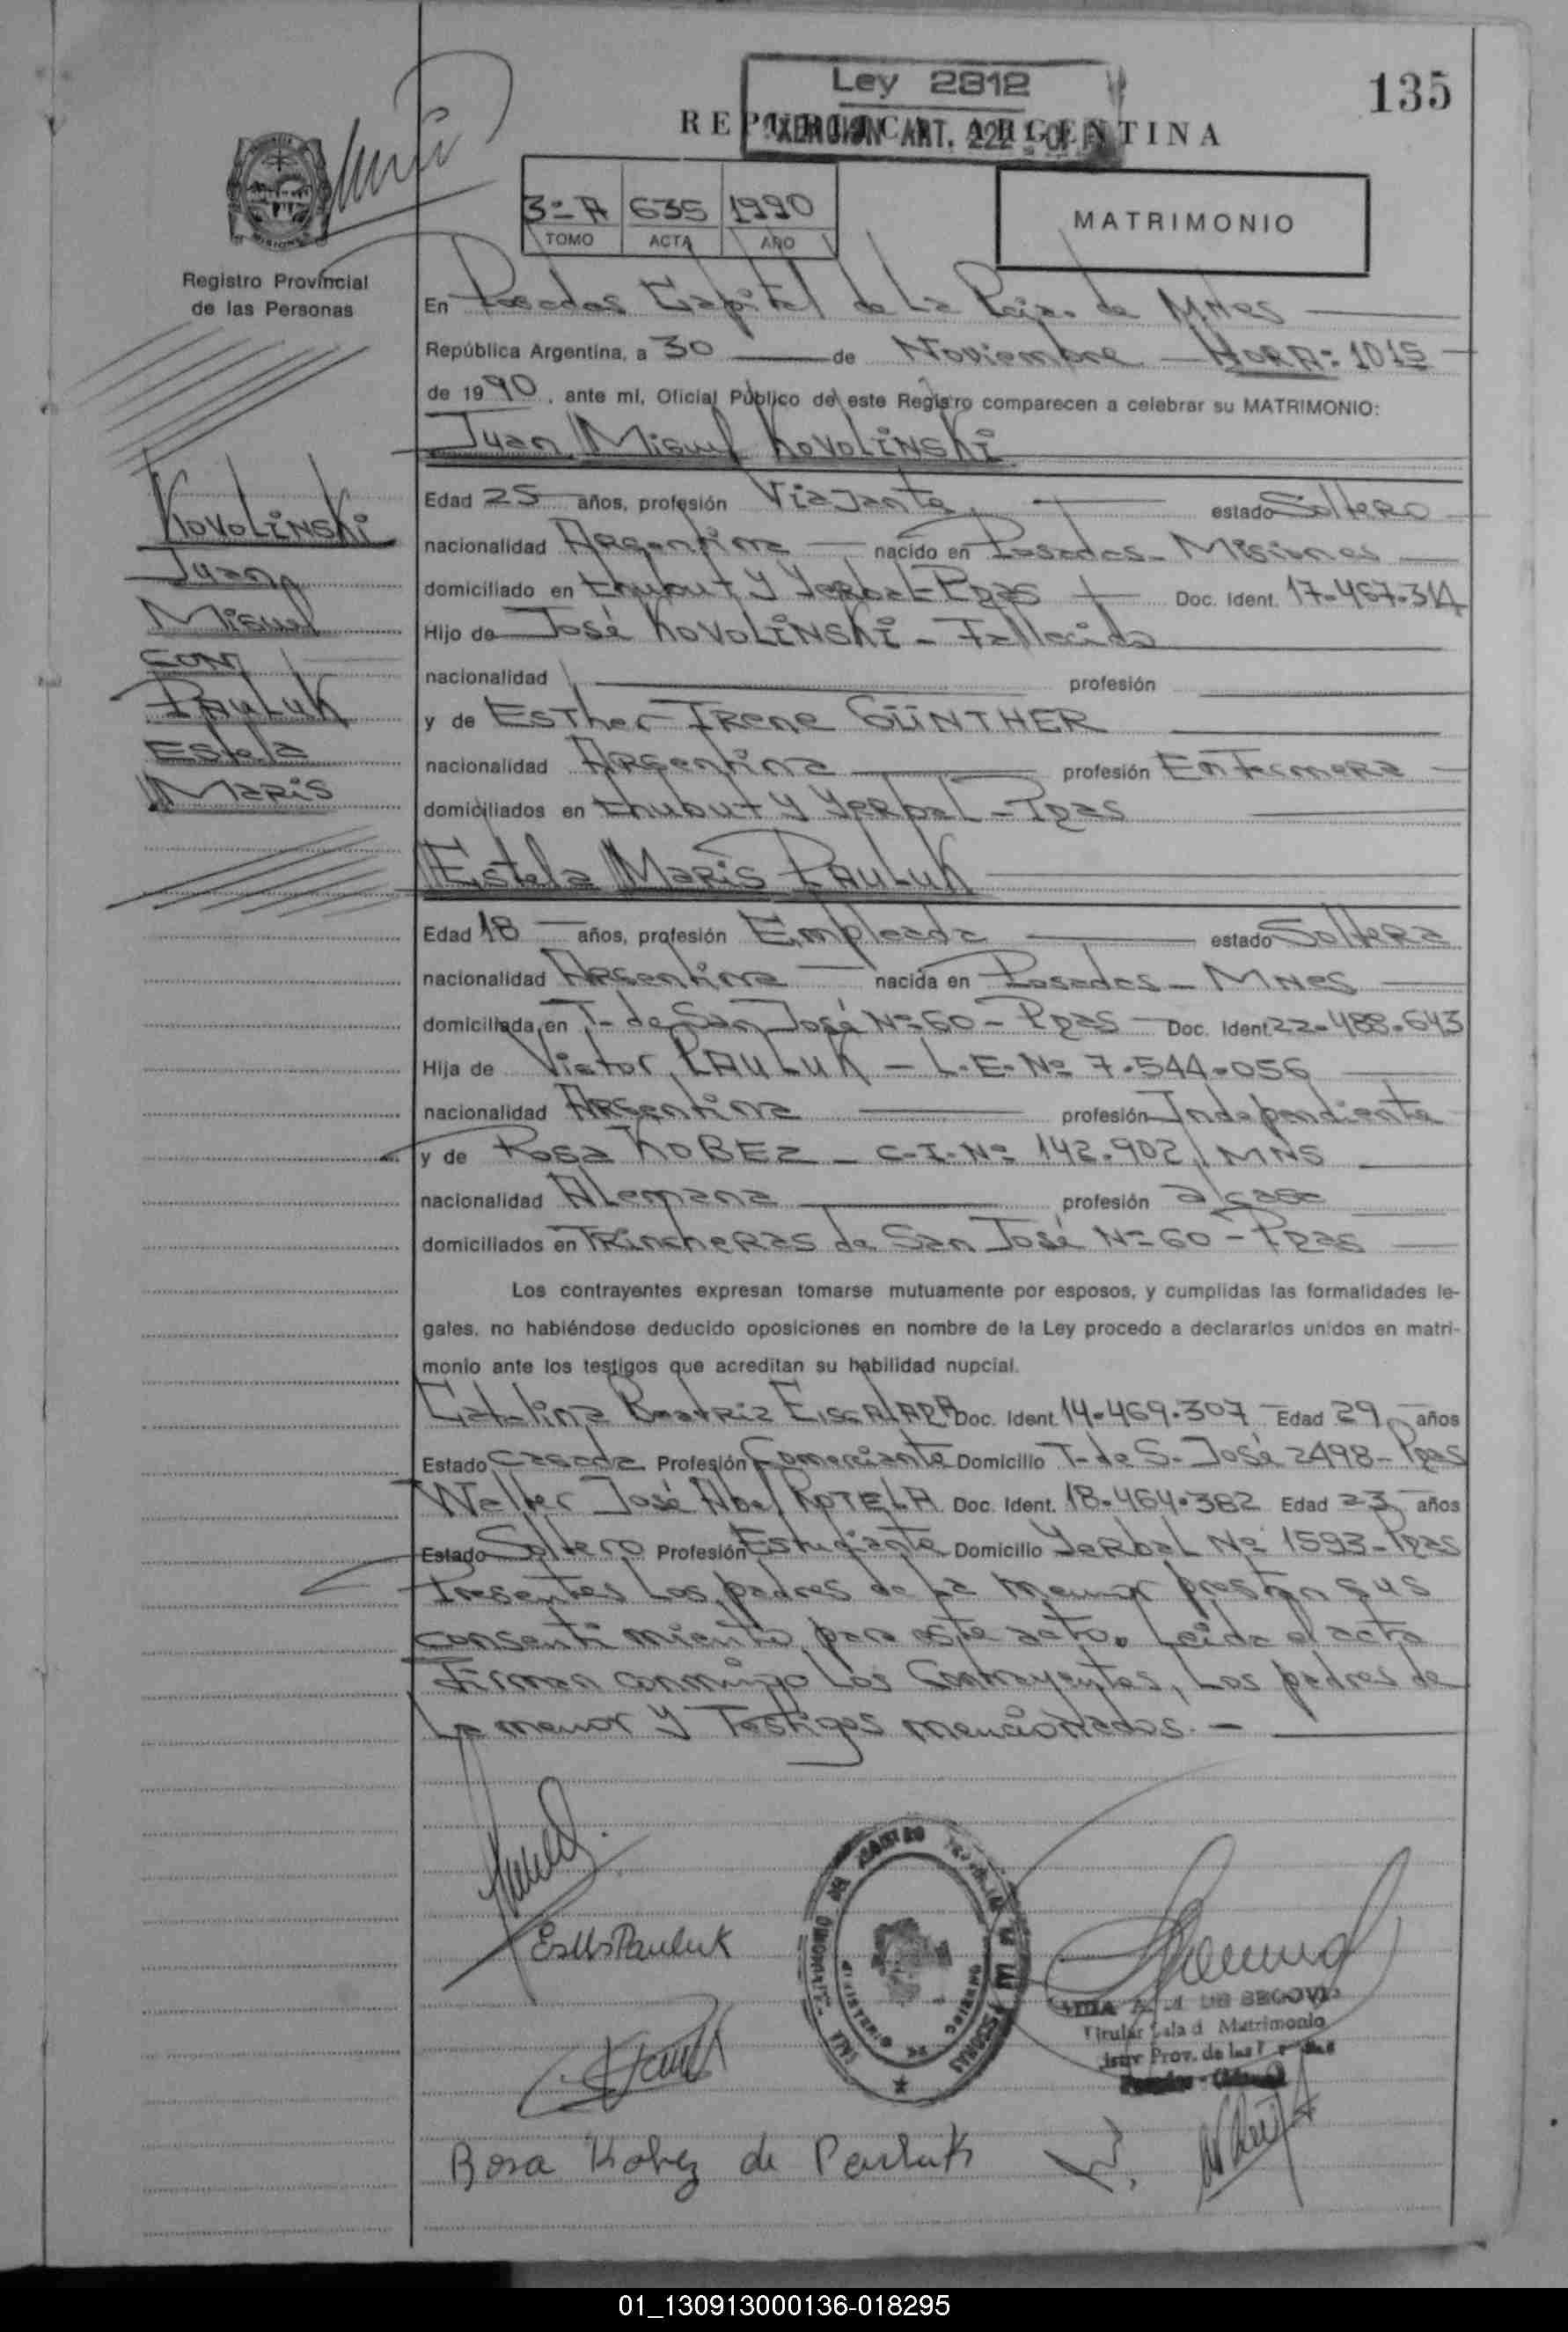 135
Ley 2812
REPUBLICA ARGENTINA
EXENCION ART. 222
3º A 635 1990
TOMO ACTA AÑO
MATRIMONIO
MISIONES
Registro Provincial
de las Personas
En Posadas Capital de La Pcia. de MNes
República Argentina, a 30 de Noviembre HORA: 1015
de 1990, ante mí, Oficial Público de este Registro comparecen a celebrar su MATRIMONIO:
Juan Miguel KOVOLINSKI
KOVOLINSKI
Juan
Miguel
CON
PAULUK
Estela
Maris
Edad 25 años, profesión Viajante estado Soltero
nacionalidad Argentina nacido en Posadas - Misiones
domiciliado en Chubut y Yerbal - Pgas Doc. Ident. 17.467.314
Hijo de José KOVOLINSKI - Fallecido
nacionalidad profesión
y de Esther Irene GÜNTHER
nacionalidad Argentina profesión Enfermera
domiciliados en Chubut y Yerbal - Pgas
Estela Maris PAULUK
Edad 18 años, profesión Empleada estado Soltera
nacionalidad Argentina nacida en Posadas - MNes
domiciliada en T. de San José Nº 60 - Pgas Doc. Ident. 22.488.643
Hija de Victor PAULUK - L.E. Nº 7.544.056
nacionalidad Argentina profesión Independiente
y de Rosa KOBEZ - C.I. Nº 142.902 / MNS
nacionalidad Alemana profesión a/casa
domiciliados en Trincheras de San José Nº 60 - Pgas
Los contrayentes expresan tomarse mutuamente por esposos, y cumplidas las formalidades le-
gales, no habiéndose deducido oposiciones en nombre de la Ley procedo a declararlos unidos en matri-
monio ante los testigos que acreditan su habilidad nupcial.
Catalina Beatriz EISCALADA Doc. Ident. 14.469.307 Edad 29 años
Estado Casada Profesión Comerciante Domicilio T. de S. José 2498 - Pgas
Walter José Abel ROTELA Doc. Ident. 18.464.382 Edad 23 años
Estado Soltero Profesión Estudiante Domicilio Yerbal Nº 1593 - Pgas
Presentes Los padres de La menor prestan sus
consentimiento para este acto. Leida el acta
Firman conmigo Los Contrayentes, Los padres de
La menor y Testigos mencionados. -
EsMsPauluk
DE SEGOVIA
Titular Sala d Matrimonio
Prov. de las
Rosa Kobez de Pauluk
01_130913000136-018295